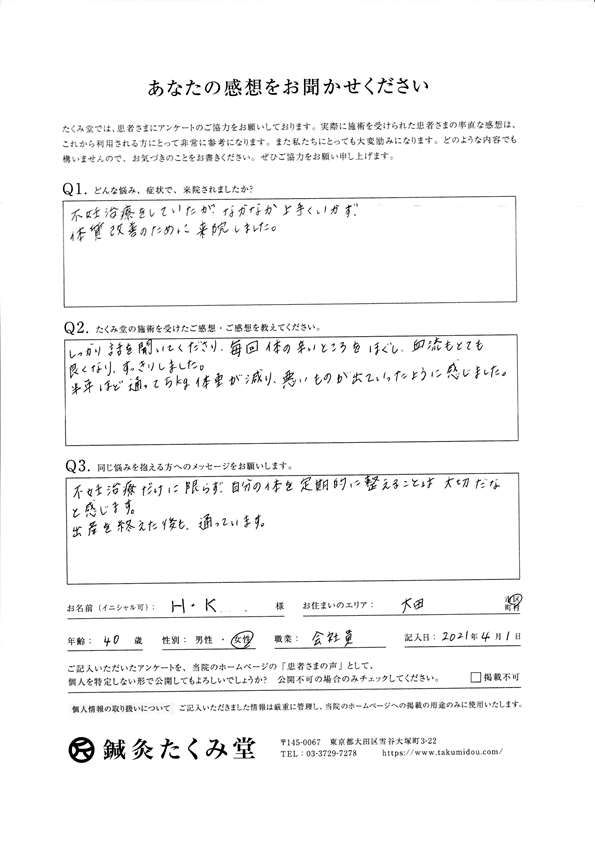 あなたの感想をお聞かせください
たくみ堂では、患者さまにアンケートのご協力をお願いしております。実際に施術を受けられた患者さまの率直な感想は、
これから利用される方にとって非常に参考になります。また私たちにとっても大変励みになります。どのような内容でも
構いませんので、お気づきのことをお書きください。ぜひご協力をお願い申し上げます。
Q1. どんな悩み、症状で、来院されましたか?
不妊治療をしていたが、なかなか上手くいかず、
体質改善のために来院しました。
Q2. たくみ堂の施術を受けたご感想・ご感想を教えてください。
しっかり話を聞いてくださり、毎回体の辛いところをほぐし、血流もとても
良くなり、すっきりしました。
半年ほど通って5kg体重が減り、悪いものが出ていったように感じました。
Q3. 同じ悩みを抱える方へのメッセージをお願いします。
不妊治療だけに限らず、自分の体を定期的に整えることは大切だな
と感じます。
出産を終えた後も、通っています。
お名前（イニシャル可）： H・K 様 お住まいのエリア： 大田 市区町村
年齢： 40 歳 性別： 男性 ・ 女性 職業： 会社員 記入日： 2021年4月1日
ご記入いただいたアンケートを、当院のホームページの「患者さまの声」として、
個人を特定しない形で公開してもよろしいでしょうか? 公開不可の場合のみチェックしてください。 □掲載不可
個人情報の取り扱いについて ご記入いただきました情報は厳重に管理し、当院のホームページへの掲載の用途のみに使用いたします。
鍼灸たくみ堂
〒145-0067 東京都大田区雪谷大塚町3-22
TEL：03-3729-7278 https://www.takumidou.com/